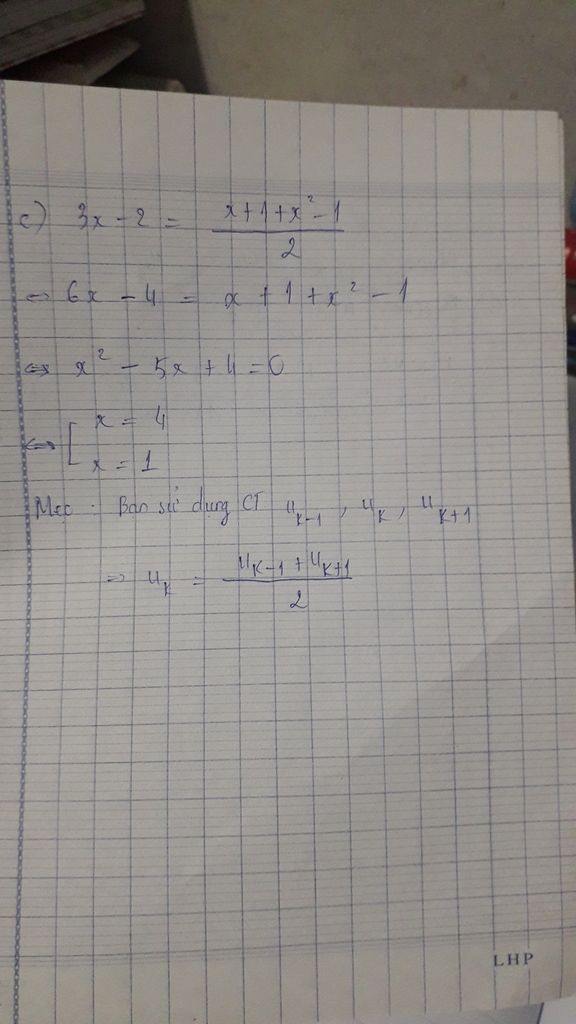 c) 3x - 2 = (x + 1 + x² - 1) / 2
⇔ 6x - 4 = x + 1 + x² - 1
⇔ x² - 5x + 4 = 0
⇔ [ x = 4
x = 1
Mẹo : Bạn sử dụng CT u_{k-1} , u_k , u_{k+1}
⇒ u_k = (u_{k-1} + u_{k+1}) / 2
LHP